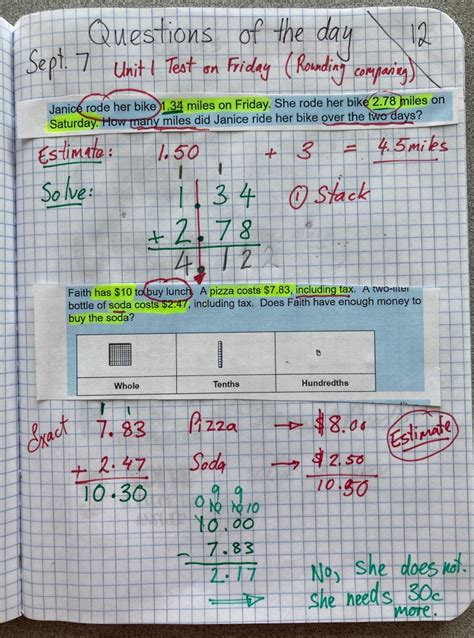 Questions of the day
12
Sept. 7
Unit 1 Test on Friday (Rounding comparing)
Janice rode her bike 1.34 miles on Friday. She rode her bike 2.78 miles on
Saturday. How many miles did Janice ride her bike over the two days?
Estimate: 1.50 + 3 = 4.5 miles
1 1
Solve: 1.34 ① Stack
+ 2.78
4.12 2
Faith has $10 to buy lunch. A pizza costs $7.83, including tax. A two-liter
bottle of soda costs $2.47, including tax. Does Faith have enough money to
buy the soda?
Whole Tenths Hundredths
1 1
Exact 7.83 Pizza → $8.00 Estimate
+ 2.47 Soda → $2.50
10.30 10.50
9 9
0 10 10 10
10.00
- 7.83
2.17
No, She does not.
She needs 30c
more.